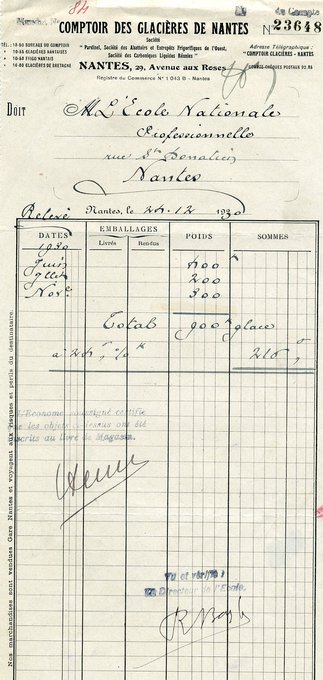 84
du Compte
Nº 23648
COMPTOIR DES GLACIÈRES DE NANTES
Société
"Pardieul, Société des Abattoirs et Entrepôts Frigorifiques de l'Ouest,
Société des Carboniques Liquides Réunies"
NANTES, 29, Avenue aux Roses
Registre du Commerce Nº 1043 B - Nantes
TÉL. : 10-60 BUREAUX DU COMPTOIR
10-60 GLACIÈRES NANTAISES
10-60 FRIGO NANTAIS
GLACIÈRES DE BRETAGNE
Adresse Télégraphique :
COMPTOIR GLACIÈRES - NANTES
COMPTE CHÈQUES POSTAUX 92.86
DOIT M L'École Nationale
Professionnelle
rue St Donatien
Nantes
Relevé Nantes, le 24-12 1930
DATES EMBALLAGES POIDS SOMMES
Livrés Rendus
1930
Juin 400 k
Jllet 200
Nov. 300
Total 900 k glace
à 24, % k 216,
L'Econome soussigné certifie
que les objets ci-dessus ont été
inscrits au livre de Magasin.
Vu et vérifié :
Le Directeur de l'Ecole.
Nos marchandises sont vendues Gare Nantes et voyagent aux risques et périls du destinataire.